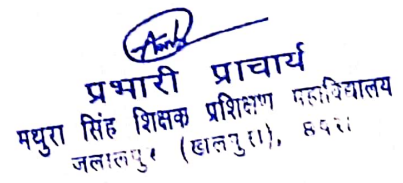 प्रभारी प्राचार्य
मथुरा सिंह शिक्षक प्रशिक्षण महाविद्यालय
जलालपुर (खालपुरा),